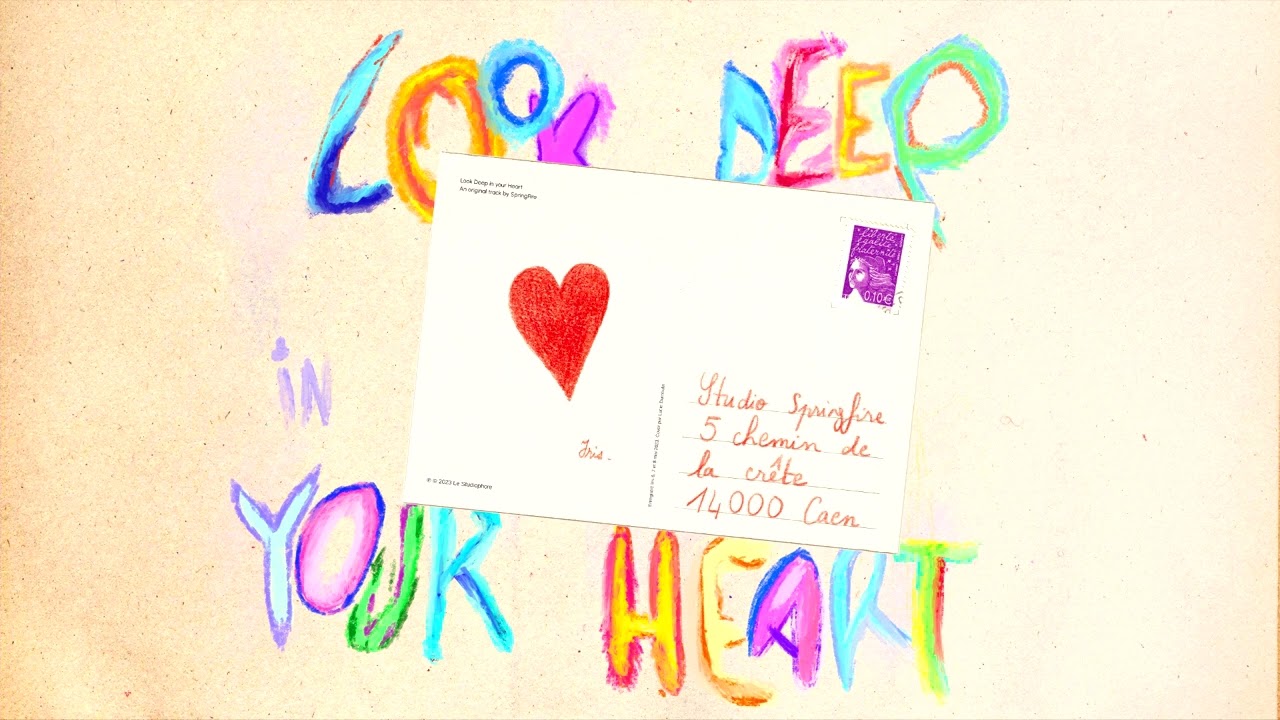 LOOK DEEP
Look Deep in your Heart
An original track by Springfire
liberté
égalité
fraternité
0,10€
iN
Studio Springfire
5 chemin de
la crête
14000 Caen
Iris.
℗ © 2023 Le Studiophore
YOUR HEART